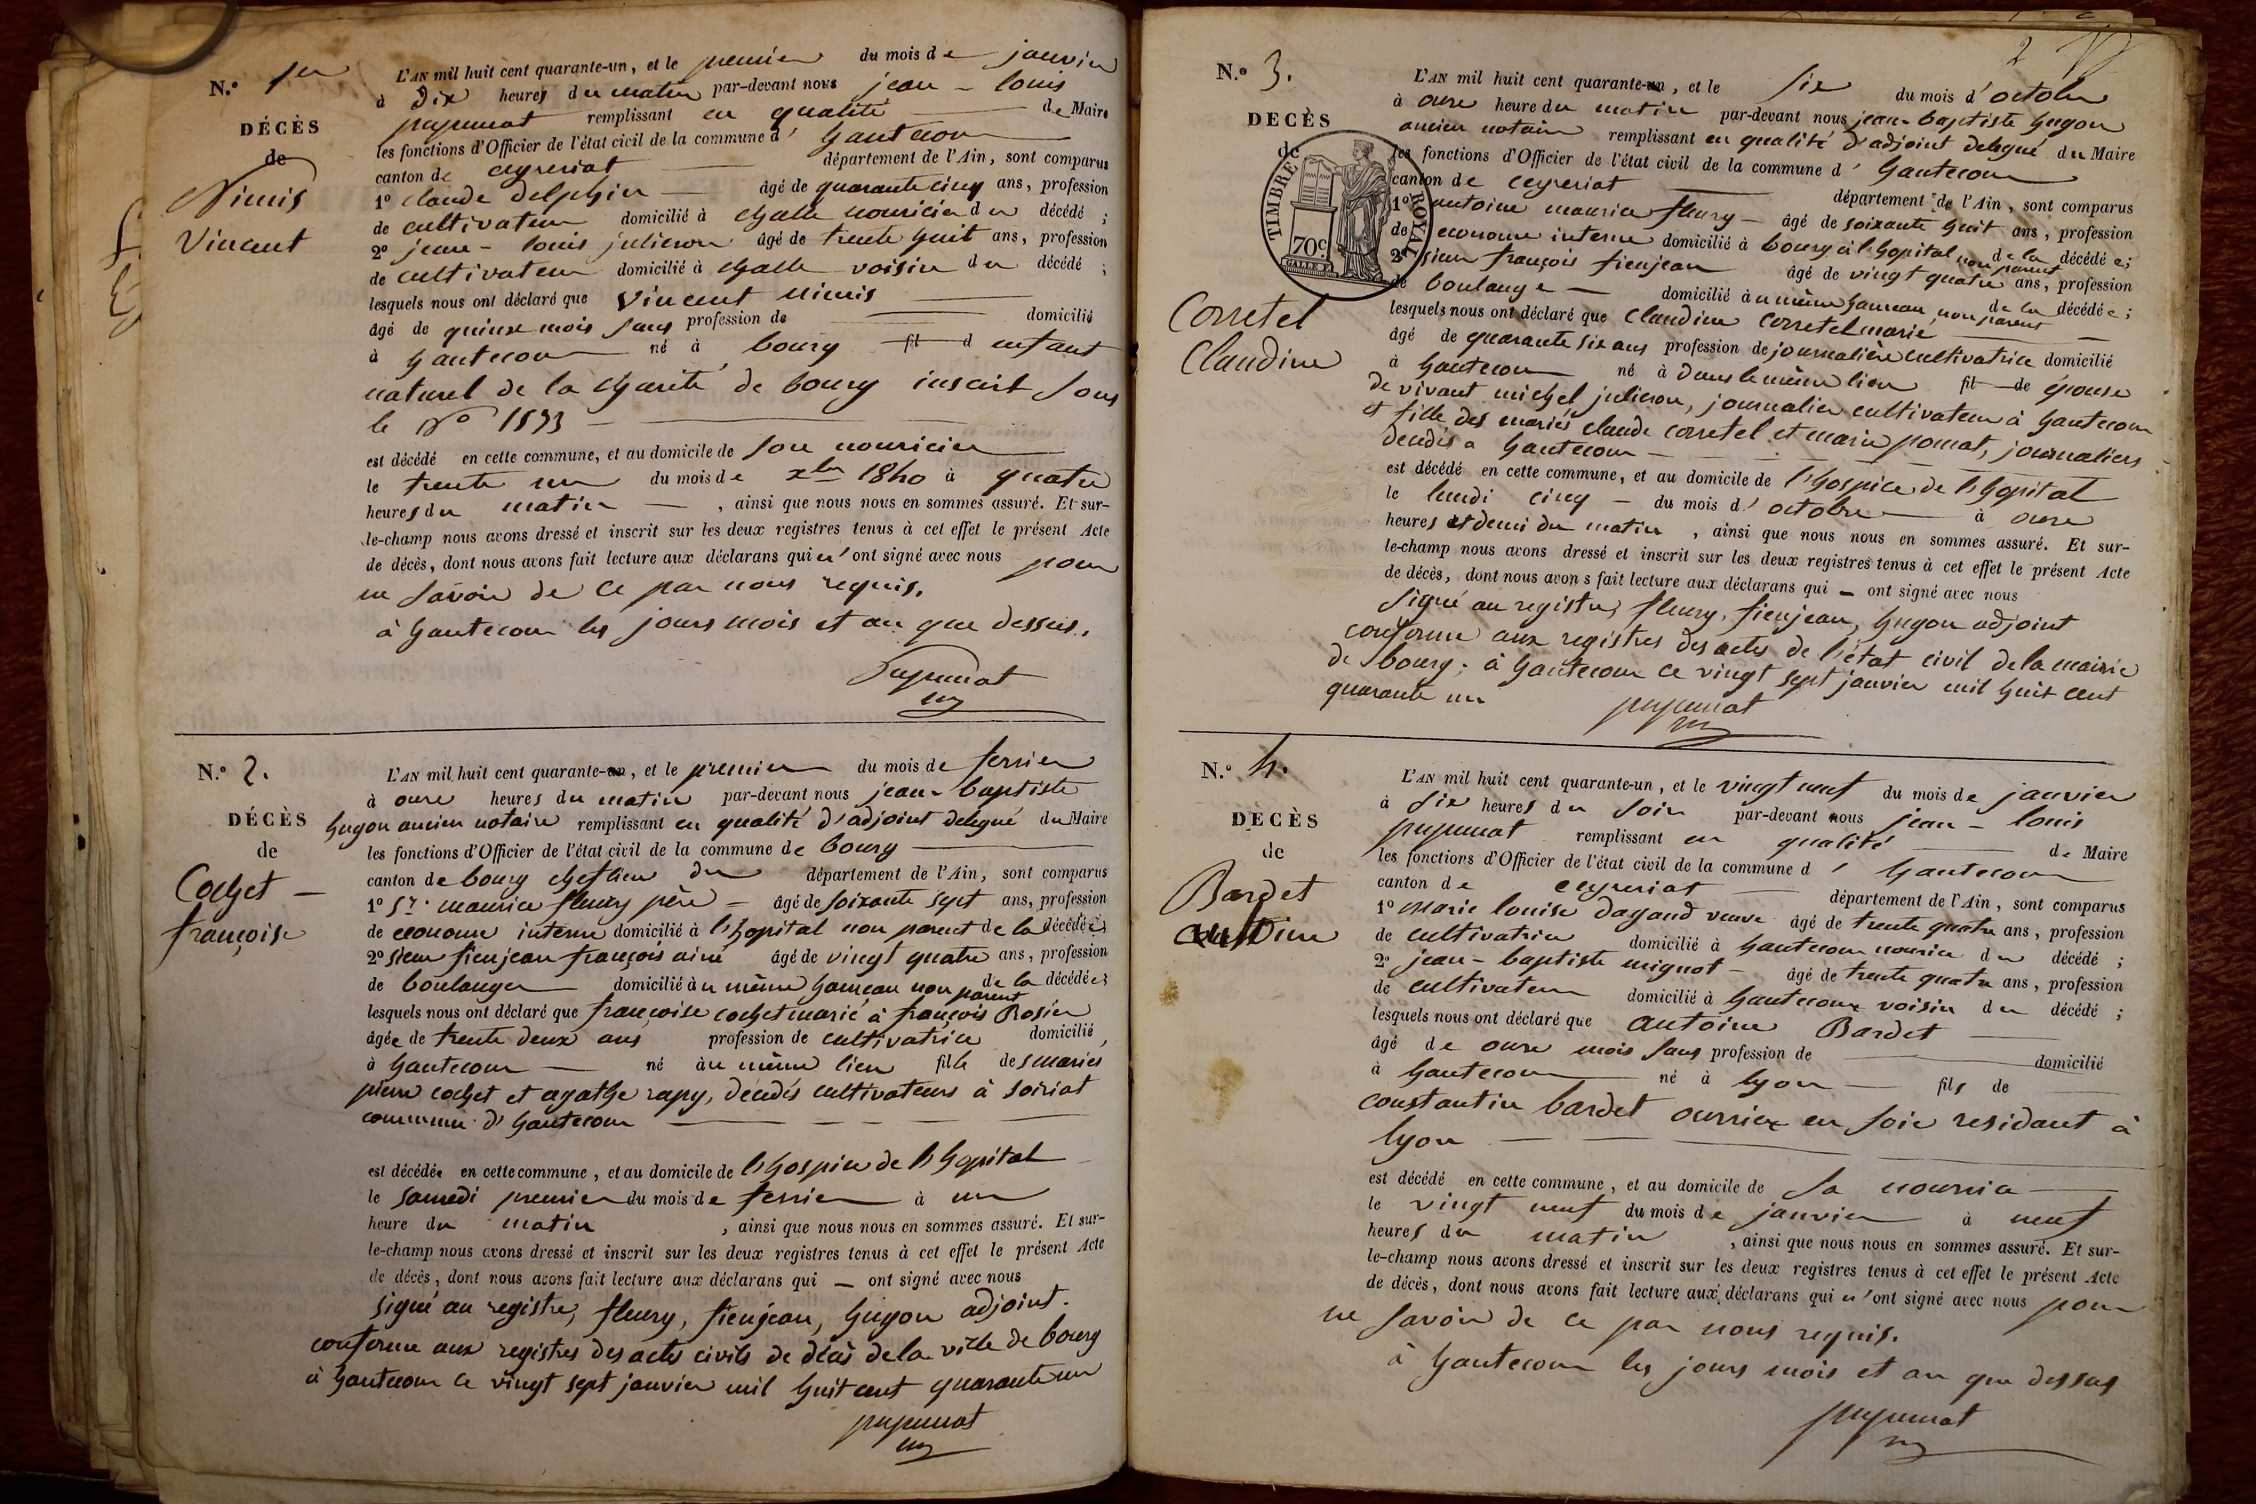 N.º 1er
DÉCÈS
de
Nimis
Vincent
L'AN mil huit cent quarante-un, et le premier du mois de janvier
à dix heures du matin par-devant nous jean-louis
puyunat remplissant en qualité de Maire
les fonctions d'Officier de l'état civil de la commune d' hautecour
canton de ceyzeriat département de l'Ain, sont comparus
1º claude delphin âgé de quarante cinq ans, profession
de cultivateur domicilié à challe nouricier du décédé ;
2º jean-louis julieron âgé de trente huit ans, profession
de cultivateur domicilié à challe voisin du décédé ;
lesquels nous ont déclaré que vincent nimis
âgé de quinze mois sans profession de domicilié
à hautecour né à bourg fil d enfant
naturel de la charité de bourg inscrit sous
le Nº 1573
est décédé en cette commune, et au domicile de son nouricier
le trente un du mois de xbre 1840 à quatre
heures du matin , ainsi que nous nous en sommes assuré. Et sur-
le-champ nous avons dressé et inscrit sur les deux registres tenus à cet effet le présent Acte
de décès, dont nous avons fait lecture aux déclarans qui n'ont signé avec nous pour
ne savoir de ce par nous requis.
à hautecour les jours mois et an que dessus.
puyunat
N.º 2.
DÉCÈS
de
Cochet
françoise
L'AN mil huit cent quarante-un, et le premier du mois de fevrier
à onze heures du matin par-devant nous jean-baptiste
hugon ancien notaire remplissant en qualité d'adjoint delegué du Maire
les fonctions d'Officier de l'état civil de la commune de bourg
canton de bourg chef lieu du département de l'Ain, sont comparus
1º Sr. maurice fleury père âgé de soixante sept ans, profession
de econome interne domicilié à l'hopital non parent de la décédée;
2º sieur fienjean françois ainé âgé de vingt quatre ans, profession
de boulanger domicilié au même hameau non parent de la décédée;
lesquels nous ont déclaré que françoise cochet marié à françois Rosier
âgée de trente deux ans profession de cultivatrice domicilié
à hautecour né au même lieu fille des mariés
pierre cochet et agathe rapy, décédés cultivateurs à soiriat
commune d'hautecour
est décédée en cette commune, et au domicile de l'hospice de l'hopital
le samedi premier du mois de fevrier à un
heure du matin , ainsi que nous nous en sommes assuré. Et sur-
le-champ nous avons dressé et inscrit sur les deux registres tenus à cet effet le présent Acte
de décès, dont nous avons fait lecture aux déclarans qui — ont signé avec nous
signé au registre, fleury, fienjean, hugon adjoint.
conforme aux registres des actes civils de décès de la ville de bourg
à hautecour ce vingt sept janvier mil huit cent quarante un
puyunat
2
N.º 3.
DECÈS
de
TIMBRE ROYAL
70 c.
Corretel
Claudine
L'AN mil huit cent quarante-un, et le six du mois d'octobre
à onze heure du matin par-devant nous jean-baptiste hugon
ancien notaire remplissant en qualité d'adjoint delegué du Maire
les fonctions d'Officier de l'état civil de la commune d' hautecour
canton de ceyzeriat département de l'Ain, sont comparus
1º antoine maurice fleury âgé de soixante huit ans, profession
de econome interne domicilié à bourg à l'hopital non parent de la décédée;
2º sieur françois fienjean âgé de vingt quatre ans, profession
de boulange domicilié au même hameau non parent de la décédée;
lesquels nous ont déclaré que claudine corretel marié
âgé de quarante six ans profession de journalière cultivatrice domicilié
à hautecour né à dans le même lieu fil de épouse
de vivant michel julieron, journalier cultivateur à hautecour
et fille des mariés claude corretel et marie pomat, journaliers
decédés a hautecour
est décédé en cette commune, et au domicile de l'hospice de l'hopital
le lundi cinq du mois d'octobre à onze
heures et demi du matin , ainsi que nous nous en sommes assuré. Et sur-
le-champ nous avons dressé et inscrit sur les deux registres tenus à cet effet le présent Acte
de décès, dont nous avons fait lecture aux déclarans qui — ont signé avec nous
signé au registre, fleury, fienjean, hugon adjoint
conforme aux registres des actes de l'état civil de la mairie
de bourg; à hautecour ce vingt sept janvier mil huit cent
quarante un puyunat
N.º 4.
DÉCÈS
de
Bardet
antoine
L'AN mil huit cent quarante-un, et le vingt neuf du mois de janvier
à six heures du soir par-devant nous jean-louis
puyunat remplissant en qualité de Maire
les fonctions d'Officier de l'état civil de la commune d' hautecour
canton de ceyzeriat département de l'Ain, sont comparus
1º marie louise dagand veuve âgé de trente quatre ans, profession
de cultivatrice domicilié à hautecour nourice du décédé ;
2º jean-baptiste mignot âgé de trente quatre ans, profession
de cultivateur domicilié à hautecour voisin du décédé ;
lesquels nous ont déclaré que antoine Bardet
âgé de onze mois sans profession de domicilié
à hautecour né à lyon fils de
constantin bardet ouvrier en soie residant à
lyon
est décédé en cette commune, et au domicile de sa nourrice
le vingt neuf du mois de janvier à neuf
heures du matin , ainsi que nous nous en sommes assuré. Et sur-
le-champ nous avons dressé et inscrit sur les deux registres tenus à cet effet le présent Acte
de décès, dont nous avons fait lecture aux déclarans qui n'ont signé avec nous pour
ne savoir de ce par nous requis.
à hautecour les jours mois et an que dessus
puyunat